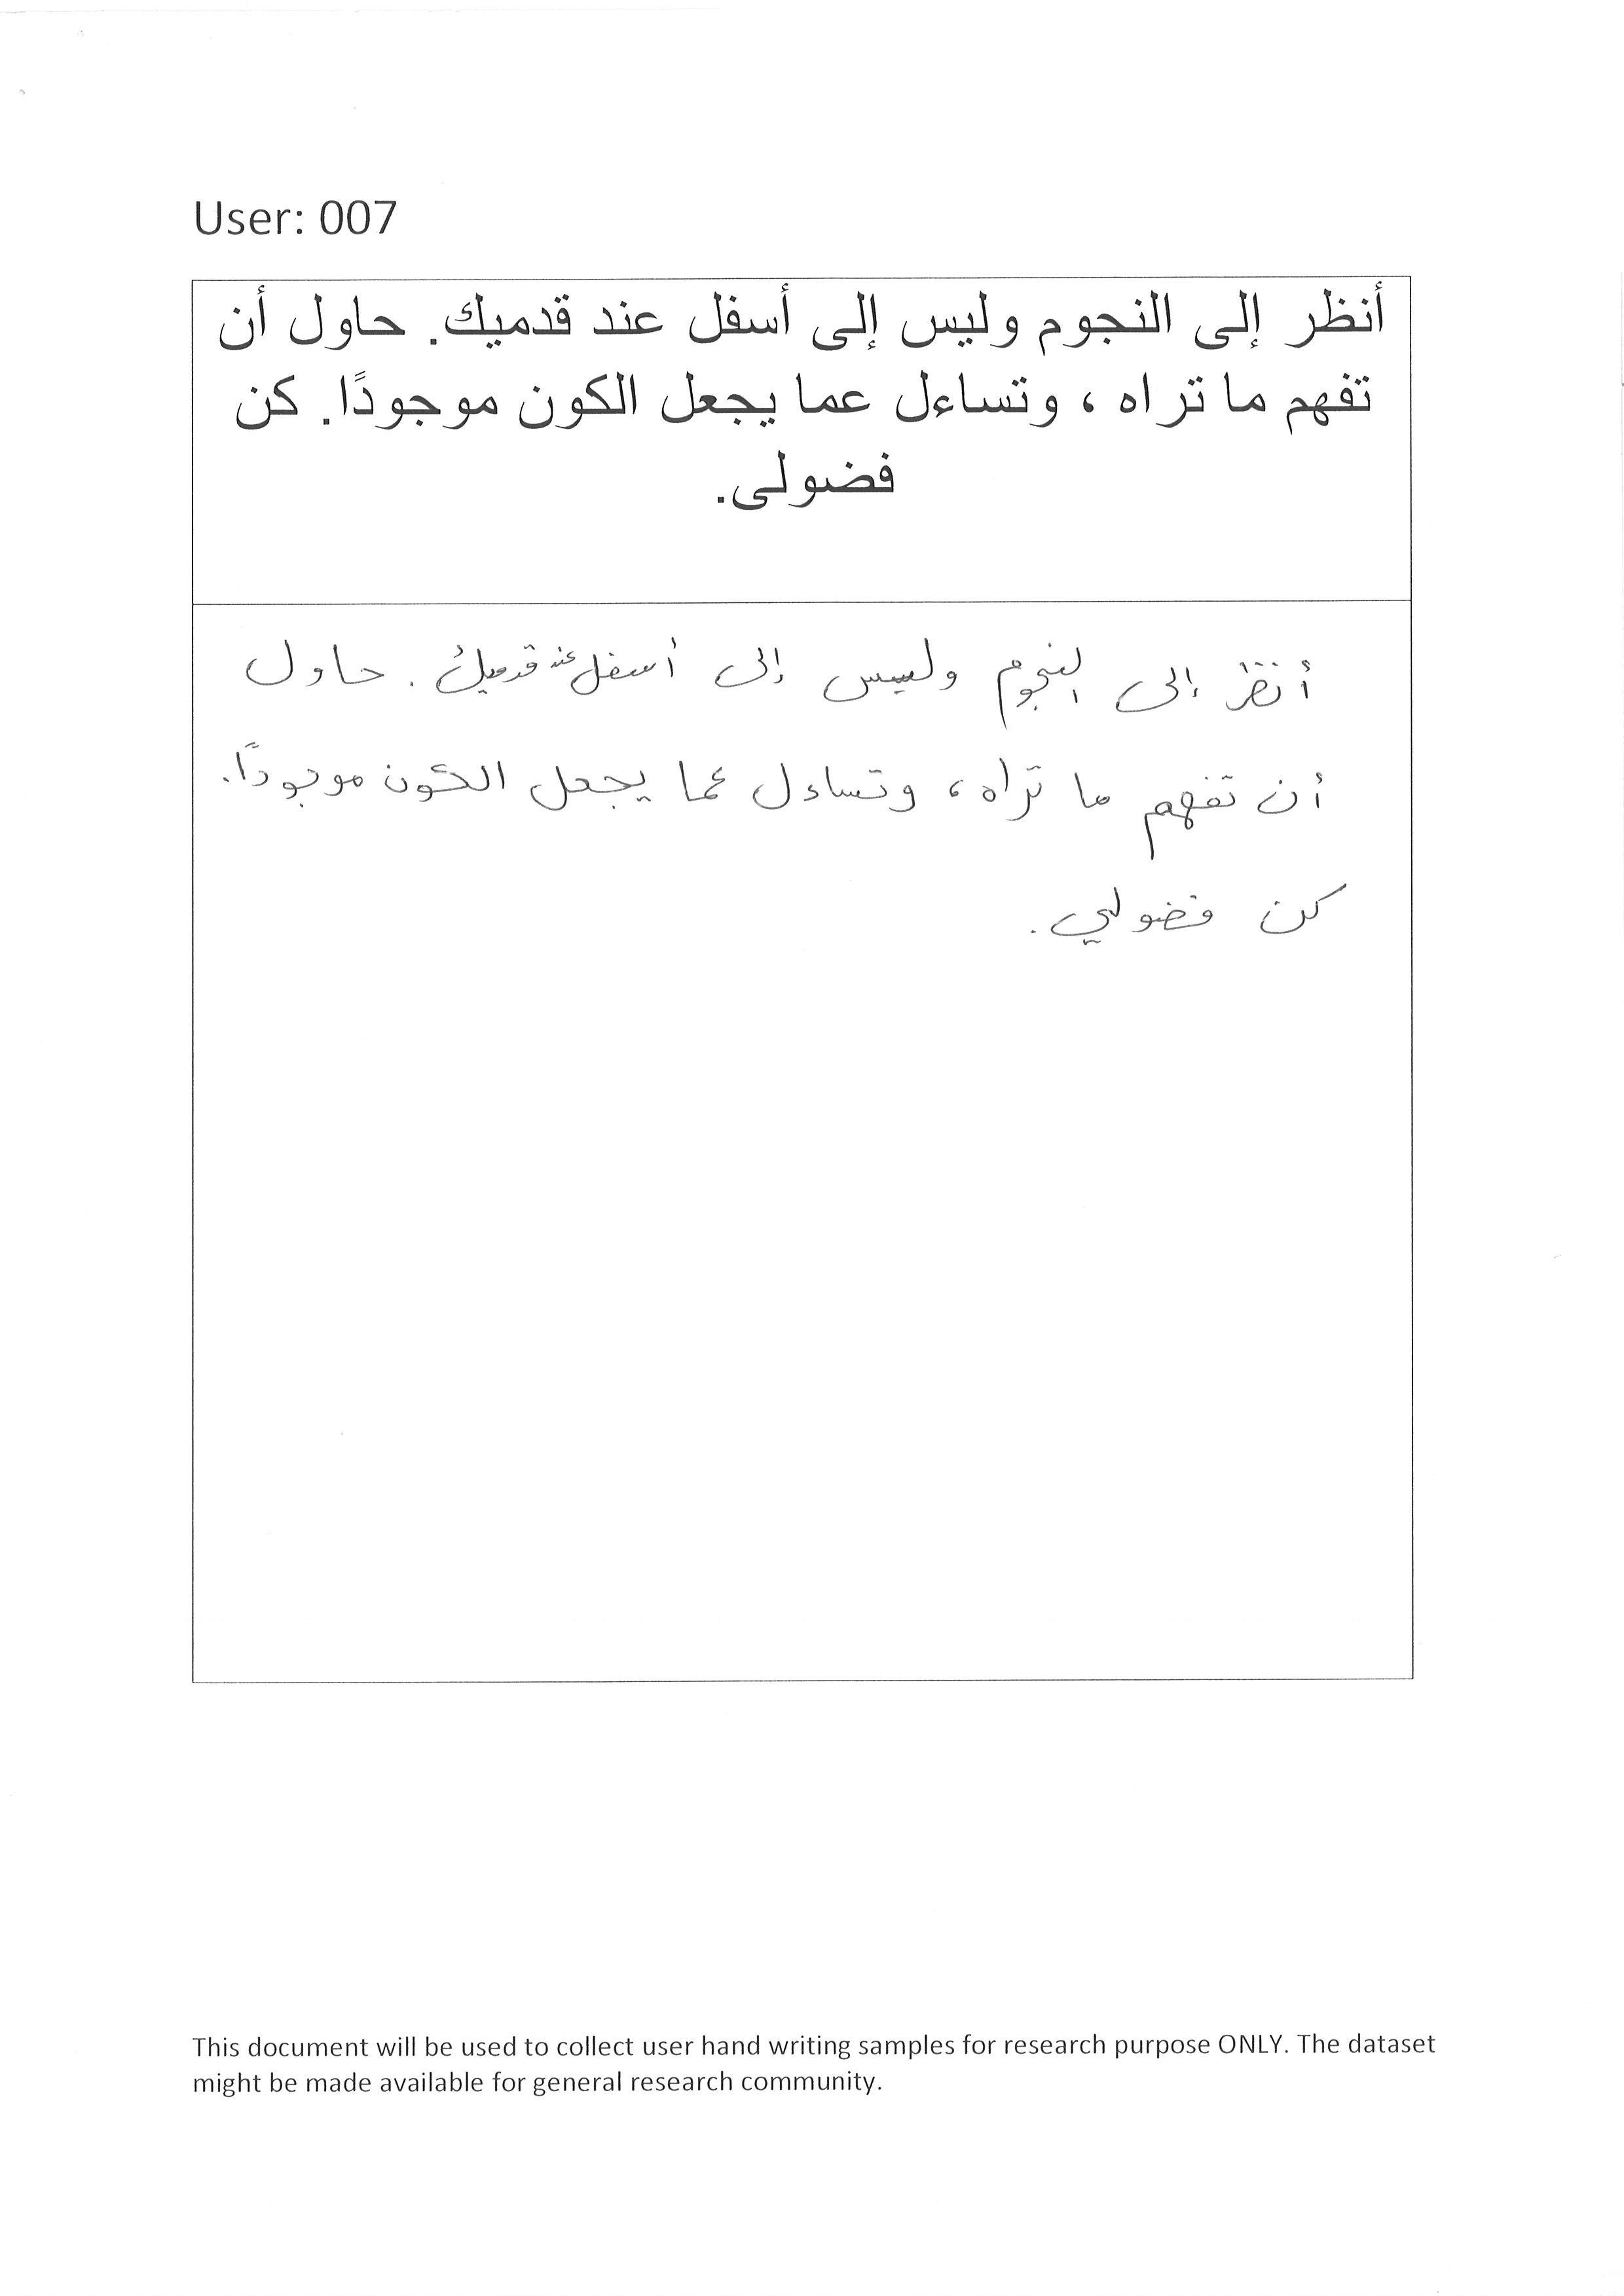 User: 007
أنظر إلى النجوم وليس إلى أسفل عند قدميك. حاول أن
تفهم ما تراه ، وتساءل عما يجعل الكون موجودًا. كن
فضولى.
أنظر إلى النجوم وليس إلى أسفل عند قدميك . حاول
أن تفهم ما تراه ، وتساءل عما يجعل الكون موجودًا.
كن فضولي .
This document will be used to collect user hand writing samples for research purpose ONLY. The dataset
might be made available for general research community.